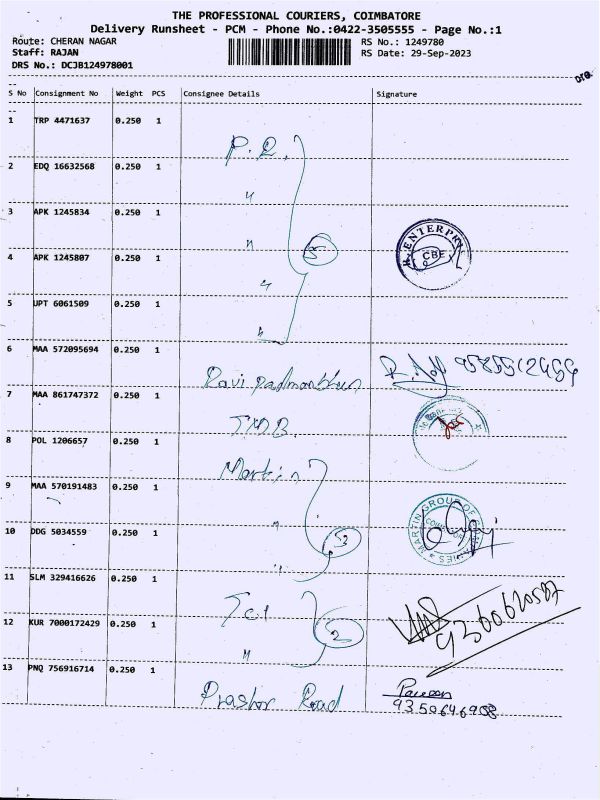 THE PROFESSIONAL COURIERS, COIMBATORE
Delivery Runsheet - PCM - Phone No.:0422-3505555 - Page No.:1
Route: CHERAN NAGAR RS No.: 1249780
Staff: RAJAN RS Date: 29-Sep-2023
DRS No.: DCJB124978001
S No Consignment No Weight PCS Consignee Details Signature
1 TRP 4471637 0.250 1
P.R.
2 EDQ 16632568 0.250 1
"
3 APK 1245834 0.250 1
" 5 ENTERPR
4 APK 1245807 0.250 1 CBE
"
5 UPT 6061509 0.250 1
"
6 MAA 572095694 0.250 1
Ravi padmanbhan
7 MAA 861747372 0.250 1
8 POL 1206657 0.250 1
Martin
9 MAA 570191483 0.250 1
" MARTIN GROUP OF COMPANIES
10 DDG 5034559 0.250 1 3
"
11 SLM 329416626 0.250 1
12 KUR 7000172429 0.250 1 2
"
13 PNQ 756916714 0.250 1
Road 9350646908